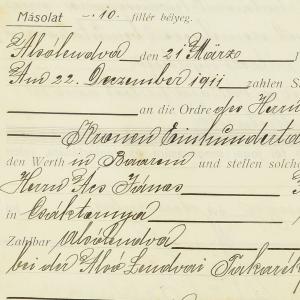 Másolat -. 10. fillér bélyeg.
Alsólendva den 21 März 1
Am 22. Dezember 1911 zahlen S
an die Ordre des Herrn
Kronen Einhunderta
den Werth in Baarem und stellen solche
Herrn Acs János
in Csáktornya
Zahlbar Alsólendva
bei der Alsó Lendvai Takarék